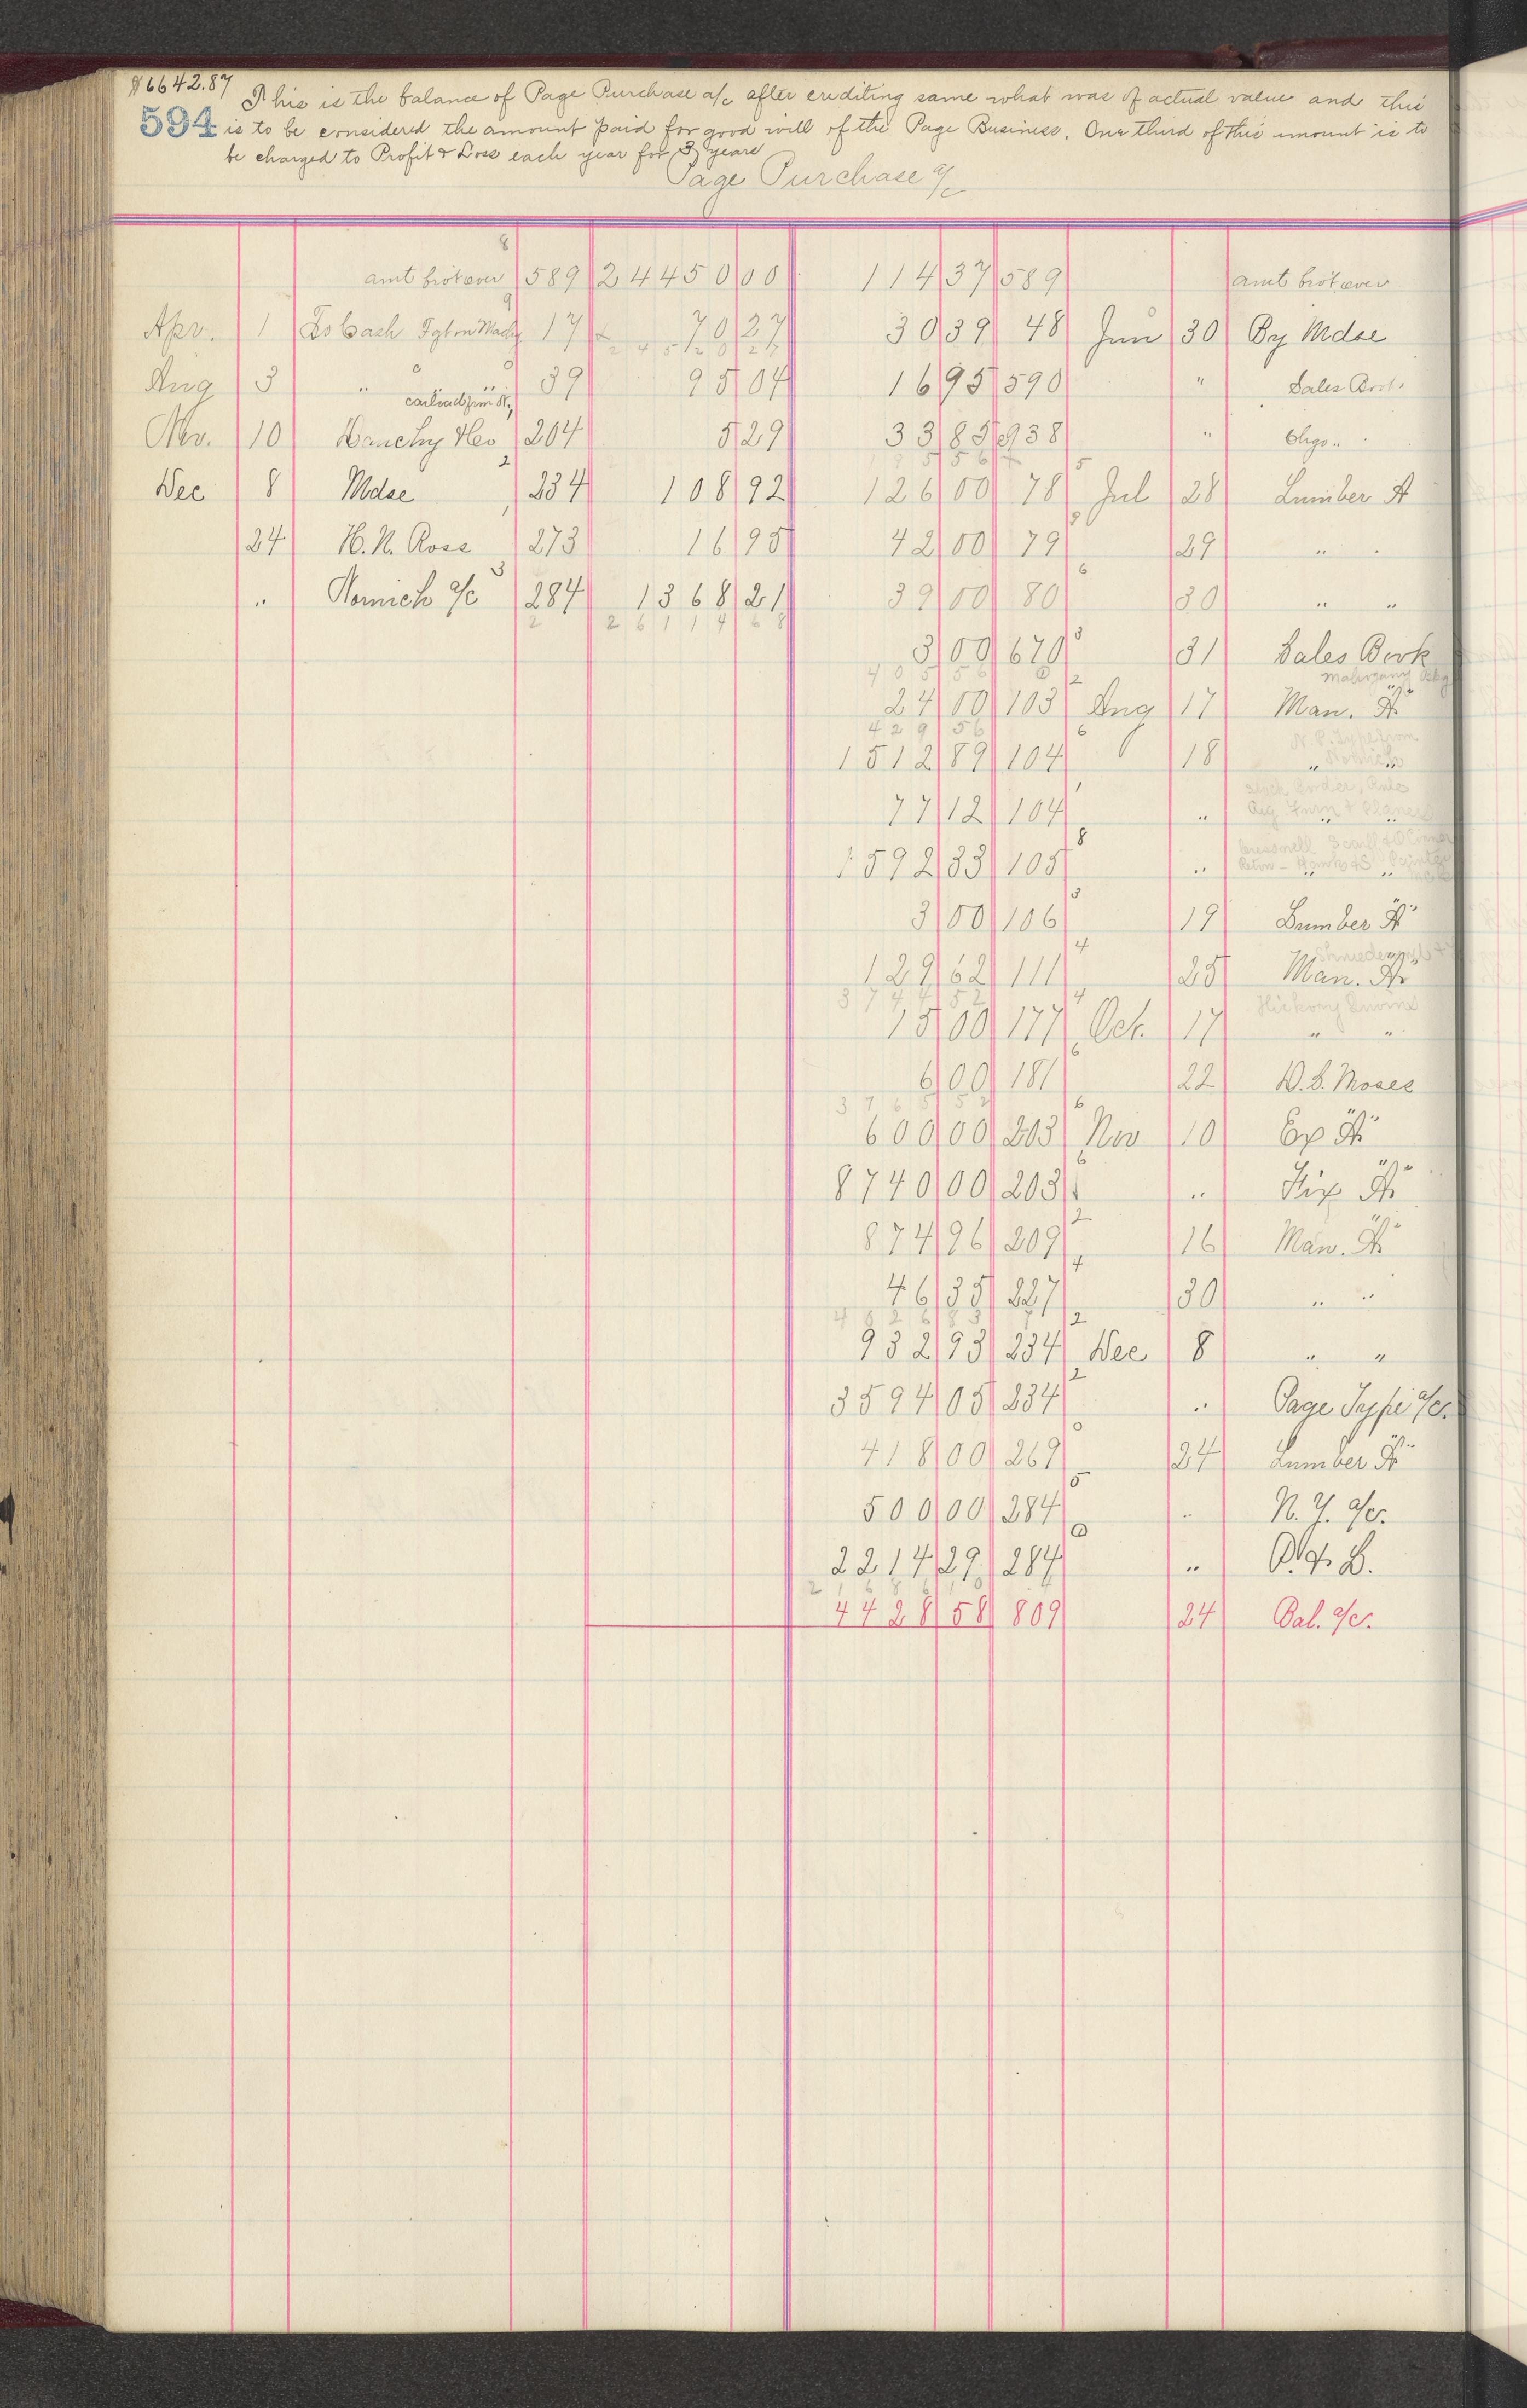 $6642.87
594 This is the balance of Page Purchase a/c after crediting same what was of actual value and this
is to be considered the amount paid for good will of the Page Business. One third of this amount is to
be charged to Profit & Loss each year for 3 years
Page Purchase a/c
8
amt brot over 589 24450 00 114 37 589 amt brot over
9
Apr. 1 To Cash Fgt on Machy 17 70 27 30 39 48 Jun 30 By Mdse
2 4 5 2 0 2 7
Aug 3 " " 39 95 04 16 95 590 " Sales Book
Nov. 10 204 5 29 33 85 938 " Chgo "
2 5
Dec 8 Mdse 234 108 92 126 00 78 Jul 28 Lumber A
9
24 H. N. Ross 273 16 95 42 00 79 29 " "
3 6
" Norwich a/c 284 1368 21 39 00 80 30 " "
2 2 6 1 1 4 6 8
3
3 00 670 31 Sales Book
4 0 5 5 6
2 Mahogany Pkg
24 00 103 Aug 17 Man. "A"
4 2 9 5 6
6
1512 89 104 18 " "
77 12 104 " " "
8
1592 33 105 " " "
3
3 00 106 19 Lumber "A"
4
129 62 111 25 Man. "A"
3 7 4 4 5 2
4
15 00 177 Oct. 17 " "
6
6 00 181 22 W. S. Moses
3 7 6 5 5 2
6
600 00 203 Nov 10 Ex "A"
6
8740 00 203 " Fix "A"
2
874 96 209 16 Man. "A"
4
46 35 227 30 " "
2
932 93 234 Dec 8 " "
2
3594 05 234 " Page Type a/c.
0
418 00 269 24 Lumber "A"
5
500 00 284 " N. Y. a/c.
0
2214 29 284 " P. & L.
2 1 6 8 6 1 0
4428 58 809 24 Bal. a/c.